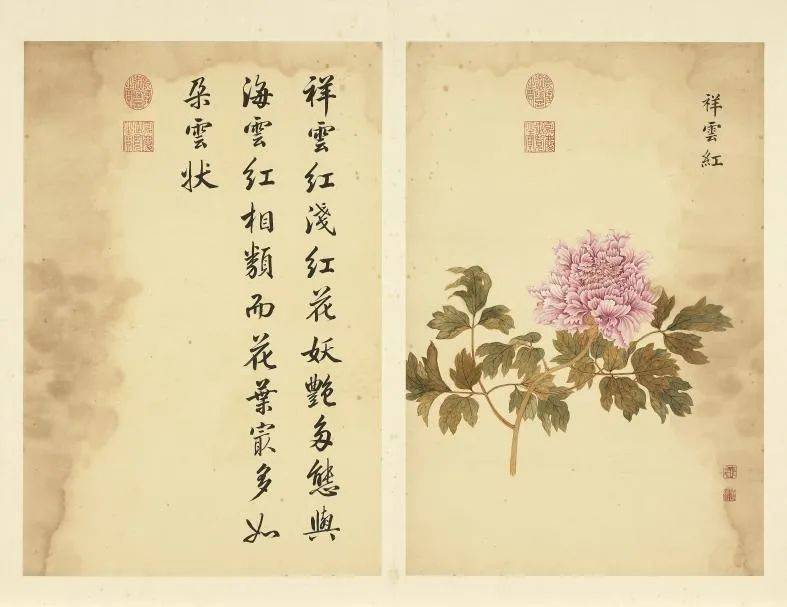 祥雲紅
祥雲紅淺紅花妖艷多態與
海雲紅相類而花葉㝡多如
朶雲狀